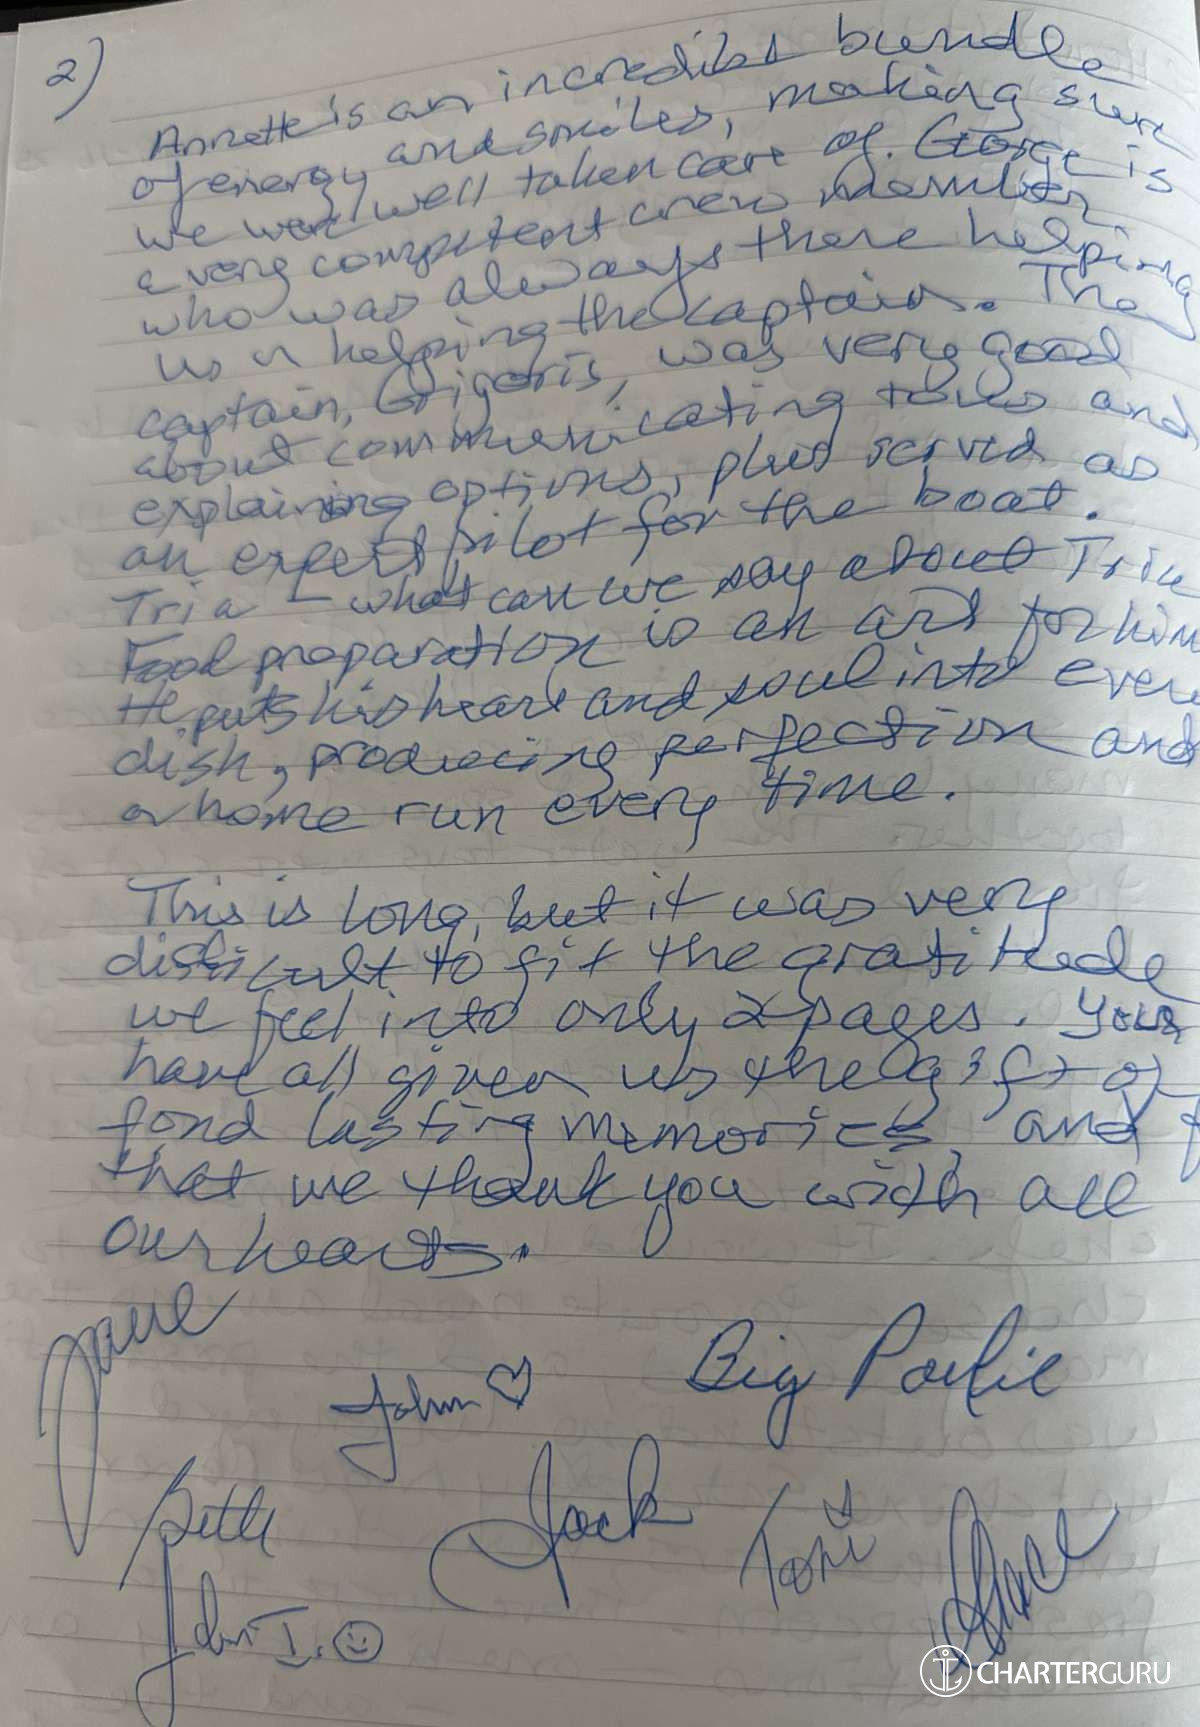 2)
Annette is an incredible bundle
of energy and smiles, making sure
we were well taken care of. George is
a very competent crew member
who was always there helping
us or helping the captain. The
captain, Grigoris, was very good
about communicating to us and
explaining options, plus served as
an expert pilot for the boat.
Tria - what can we say about Tria
Food preparation is an art for him
He puts his heart and soul into every
dish, producing perfection and
a home run every time.
This is long, but it was very
difficult to fit the gratitude
we feel into only 2 pages. You
have all given us the gift of
fond lasting memories, and f
that we thank you with all
our hearts.
John ♡
Big Paulie
Beth
Jack
Toni
John I. ☺
Grace
CHARTERGURU